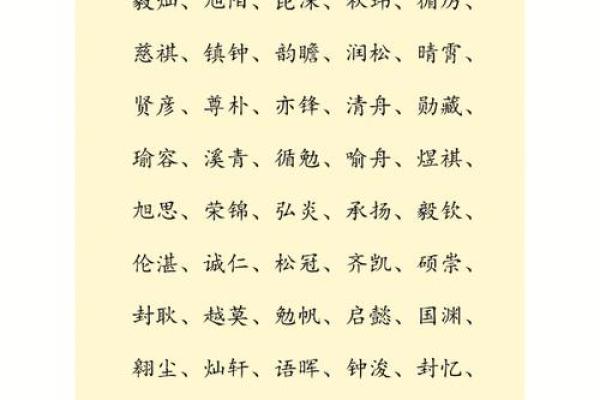 毅灿、旭阳、昆深、秋玮、循历、
慈祺、镇钟、韵瞻、润松、晴霄、
贤彦、尊朴、亦锋、清舟、勋藏、
瑜容、溪青、循勉、喻舟、煜祺、
旭思、荣锦、弘炎、承扬、毅钦、
伦湛、诚仁、松冠、齐凯、硕崇、
封耿、越莫、勉帆、启懿、国渊、
翱尘、灿轩、语晖、钟浚、封忆、